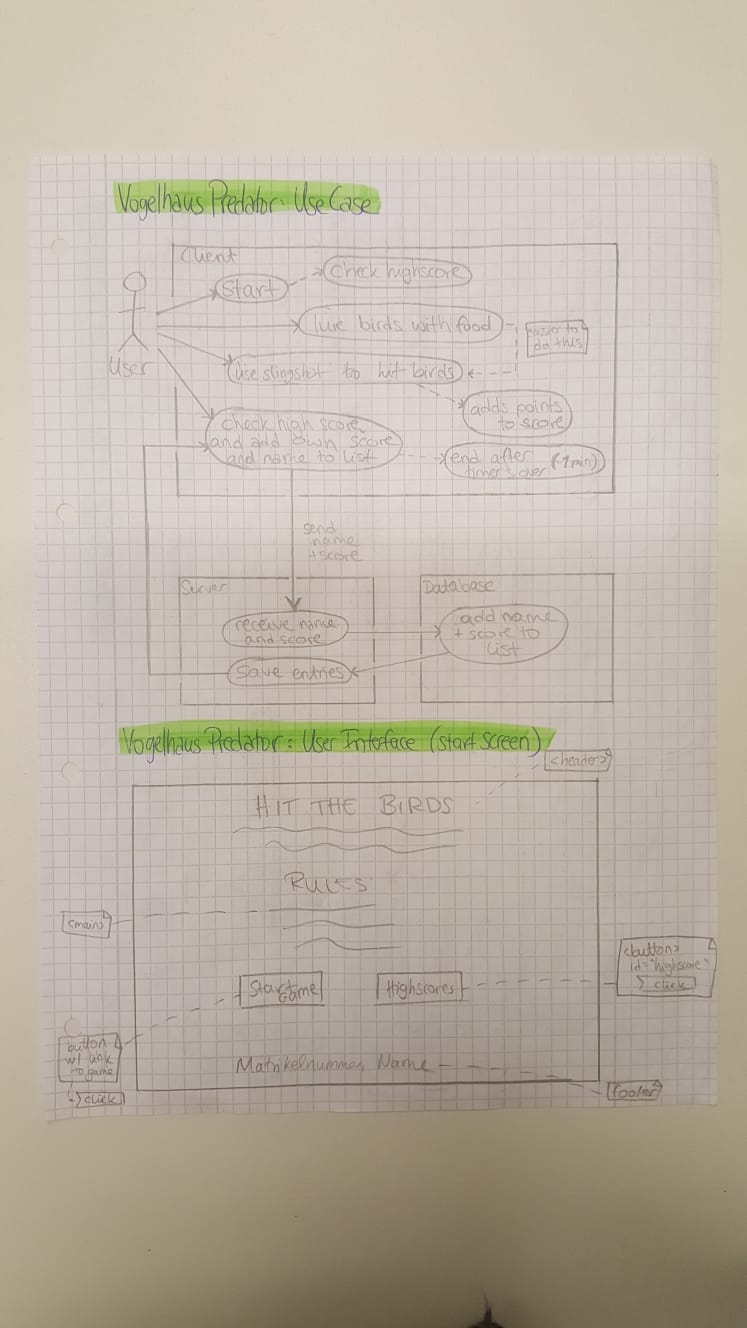 Vogelhaus Predator: Use Case
Client
Start
check highscore
lure birds with food
easier to
do this
User
use slingshot to hit birds
adds points
to score
check high score
and add own score
and name to list
end after
timer's over (1min)
send
name
+ score
Server
Database
receive name
and score
add name
+ score to
list
save entries
Vogelhaus Predator: User Interface (start screen)
<header>
HIT THE BIRDS
RULES
<main>
<button>
id="highscore"
click
Start
Game
Highscores
button
w/ link
to game
click
Matrikelnummer, Name
footer